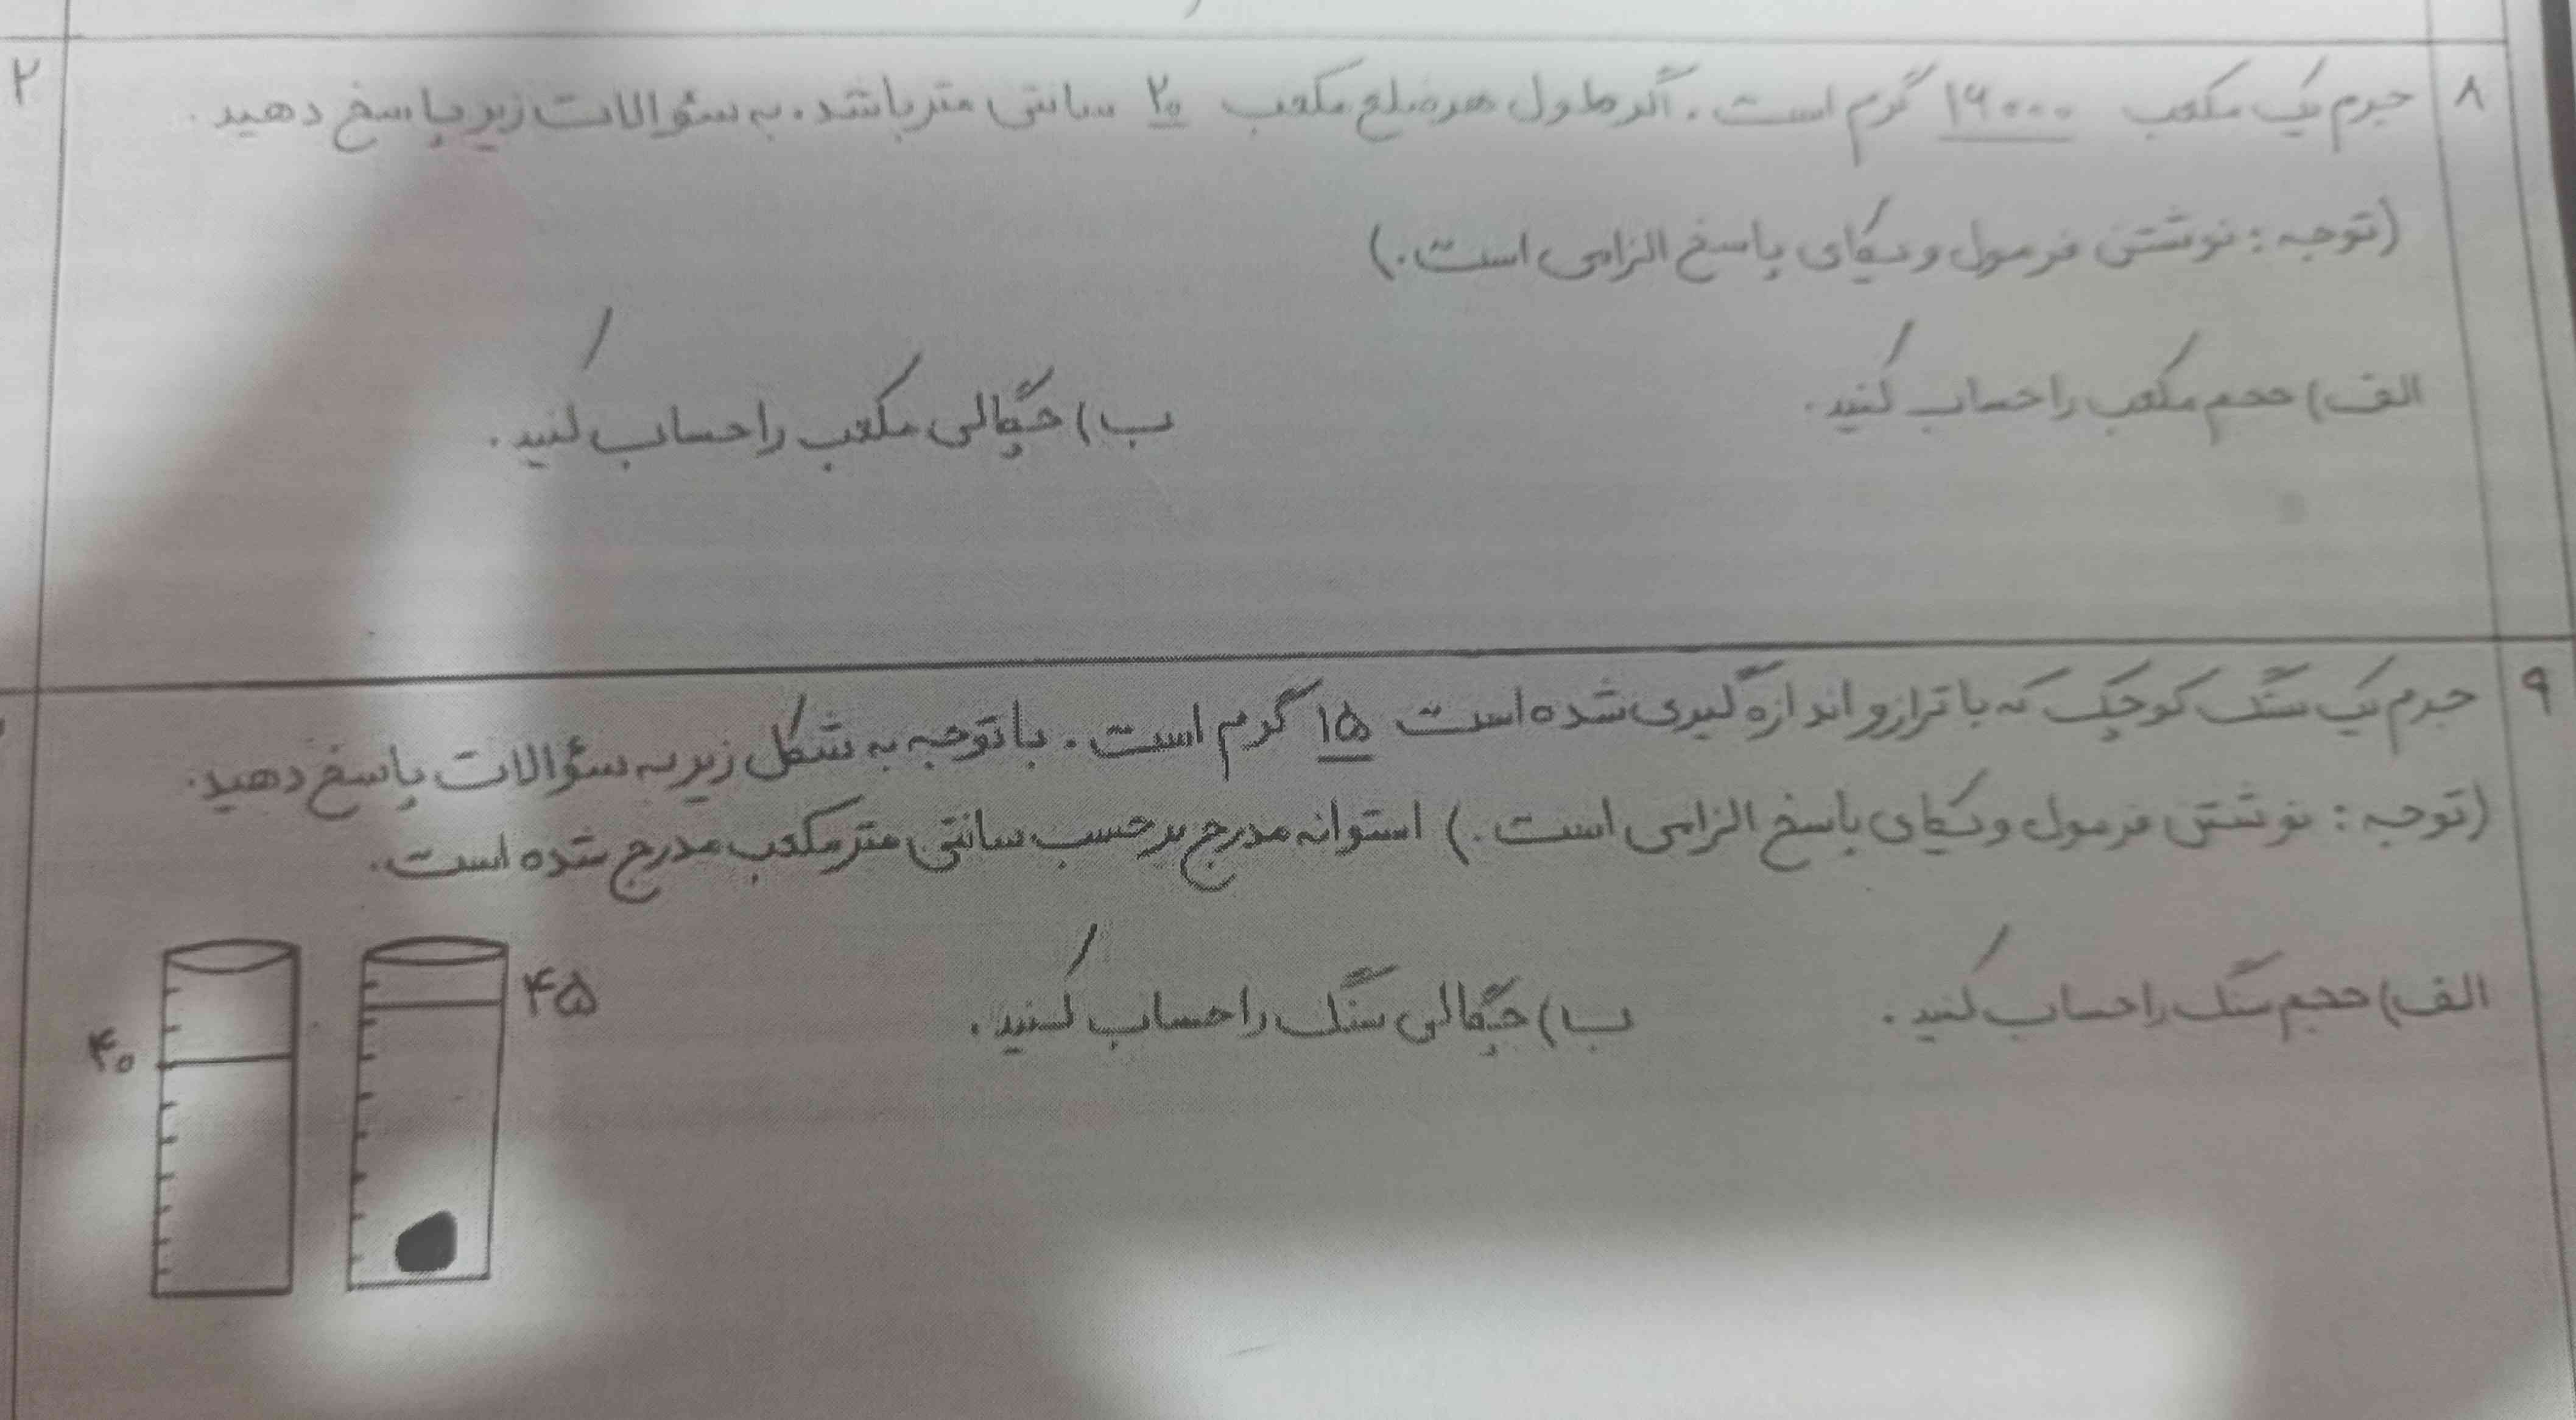 ۸ جرم یک مکعب ۱۶۰۰۰ گرم است. اگر طول هر ضلع مکعب ۲۰ سانتی متر باشد. به سؤالات زیر پاسخ دهید. ۲
(توجه: نوشتن فرمول و یکای پاسخ الزامی است.)
الف) حجم مکعب را حساب کنید. ب) چگالی مکعب را حساب کنید.
۹ جرم یک سنگ کوچک که با ترازو اندازه گیری شده است ۱۵ گرم است. با توجه به شکل زیر به سؤالات پاسخ دهید.
(توجه: نوشتن فرمول و یکای پاسخ الزامی است.) استوانه مدرج بر حسب سانتی متر مکعب مدرج شده است.
الف) حجم سنگ را حساب کنید. ب) چگالی سنگ را حساب کنید. ۴۵
۴۰